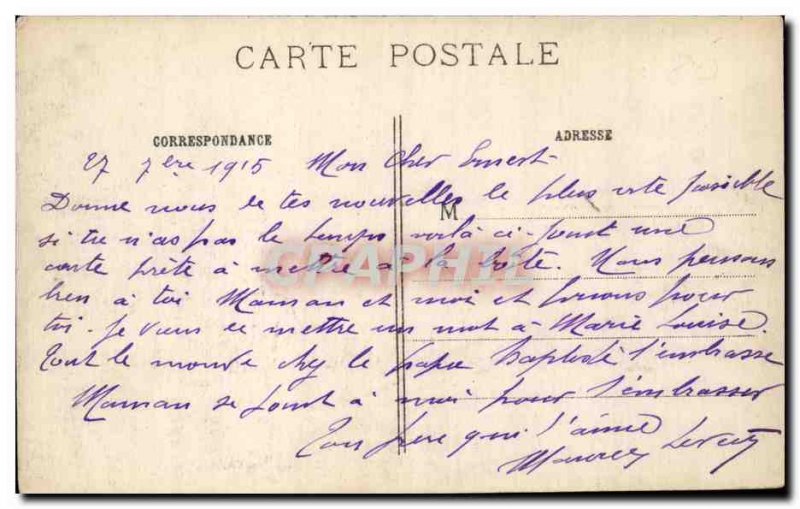 CARTE POSTALE
CORRESPONDANCE
ADRESSE
27 7bre 1915 Mon Cher Ernest
Donne nous de tes nouvelles le plus vite possible
M
si tu n'as pas le temps voilà ci-joint une
carte prête à mettre à la boîte. Nous pensons
bien à toi Maman et moi et prions pour
toi. Je viens de mettre un mot à Marie Louise.
Tout le monde chez le papa Baptiste t'embrasse
Maman se joint à moi pour t'embrasser
Ton père qui t'aime
CPAPHIL